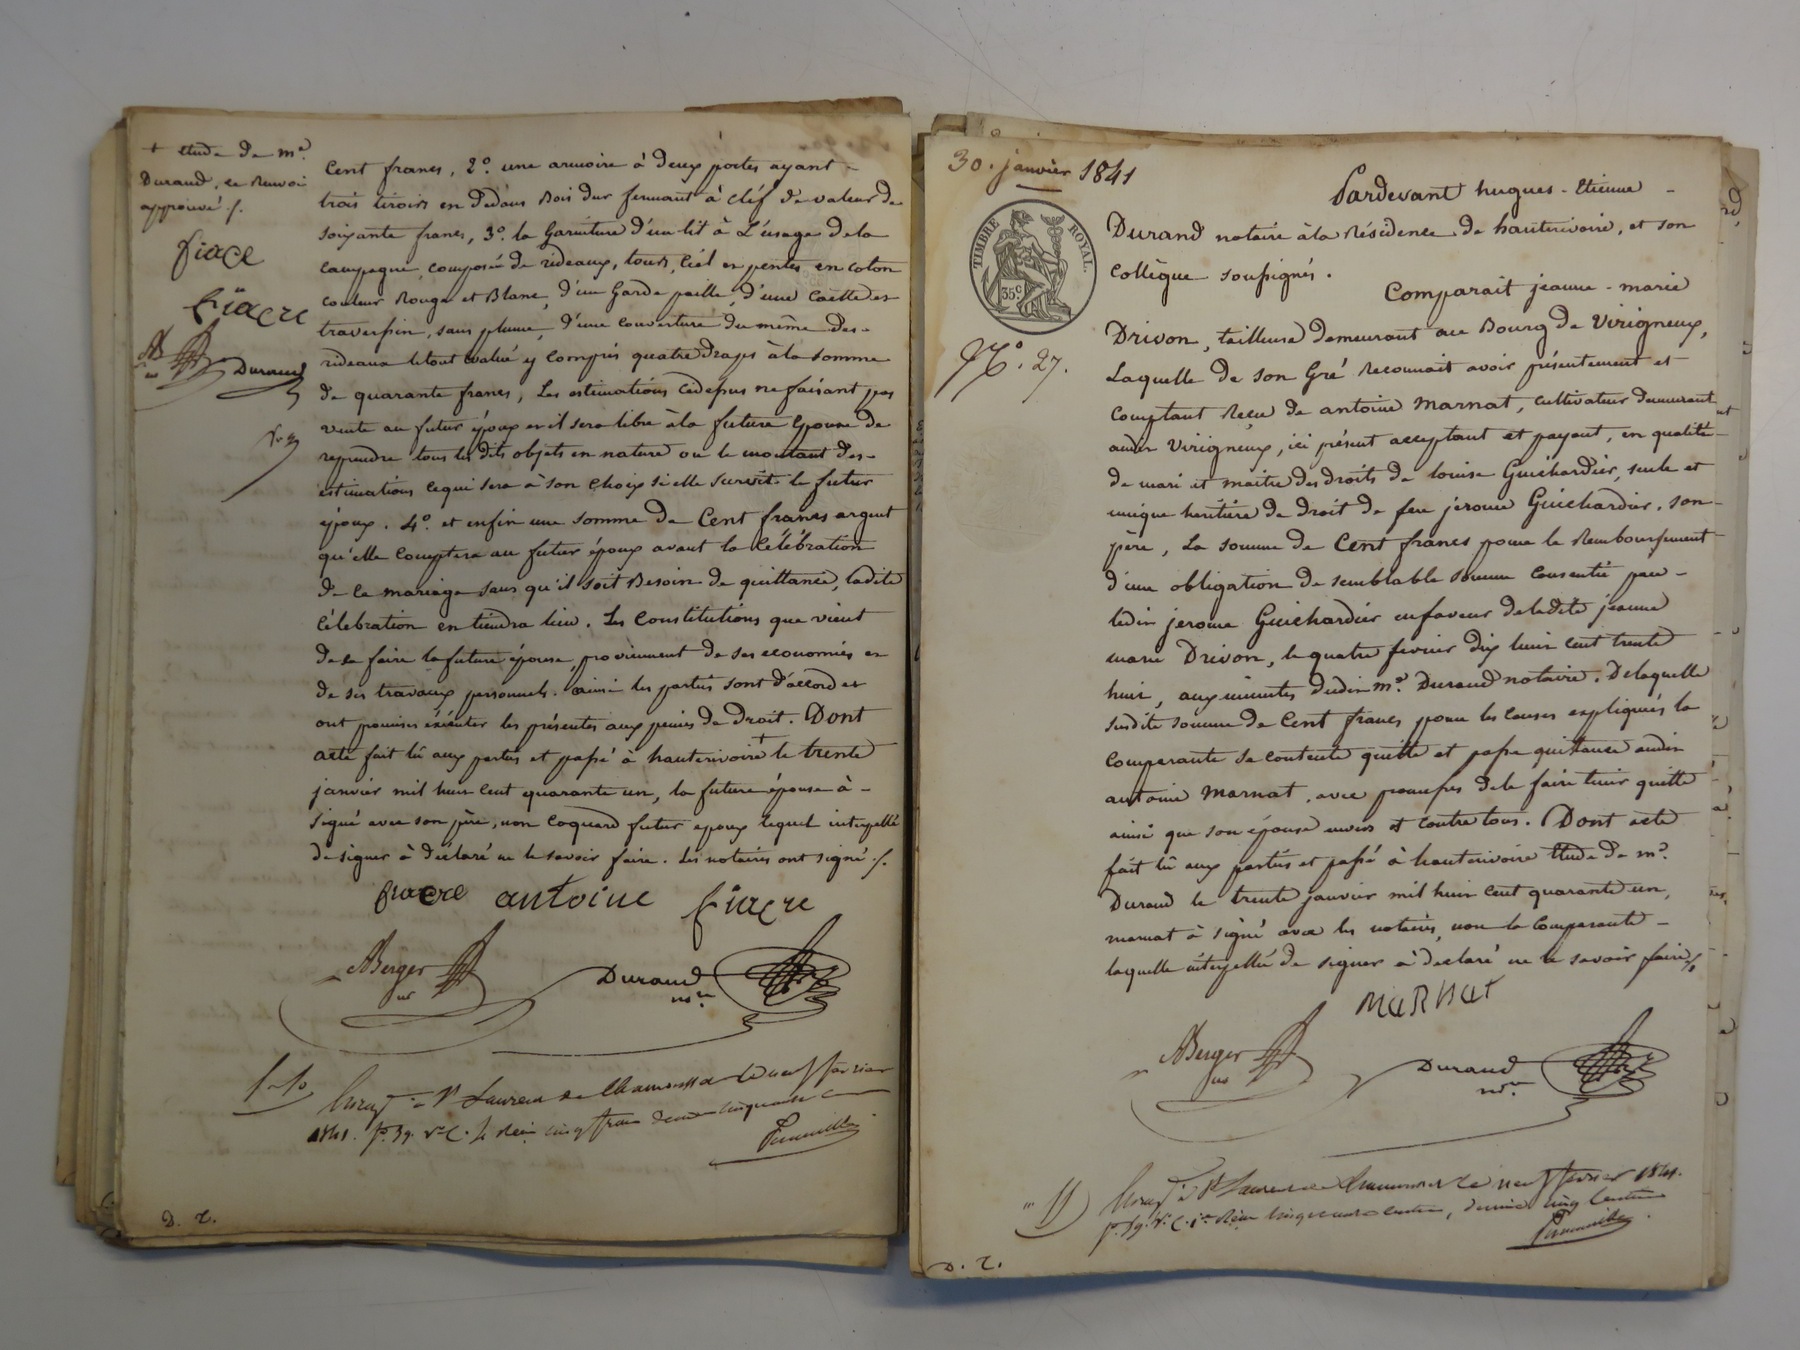 + étude de me.
Durand, ce Renvoi
approuvé /.
fiace
fiacre
AB
Durand
Cent francs, 2o. une armoire à deux portes ayant -
trois tiroirs en dedans Bois dur fermant à cléf de valeur de
soixante francs, 3o. la Garniture d'un lit à L'usage de la
campagne, composée de rideaux, tours, ciél et pentes en coton
couleur Rouge et Blanc, d'un Garde paille, d'une Coette et
traversin, sans plume, d'une couverture du même des -
rideaux le tout évalué y compris quatre draps à la somme
de quarante francs, Les estimations cidessus ne faisant pas
vente au futur époux et il sera libre à la future Epouse de
reprendre tous les dits objets en nature ou le montant des -
estimations cequi sera à son Choix si elle survit le futur
époux. 4o. et enfin une somme de Cent francs argent
qu'elle Comptera au futur époux avant la Célébration
de ce mariage sans qu'il soit Besoin de quittance, ladite
Célebration en tiendra lieu. Les Constitutions que vient
de se faire la future épouse, proviennent de ses economies et
de ses travaux personnels. ainsi les parties sont d'accord et
ont promis éxécuter les présentes aux peines de droit. Dont
acte fait lû aux parties et passé à hauterivoire + le trente
janvier mil huit Cent quarante un, la future épouse à -
signé avec son père, non Coquard futur epoux lequel interpellé
de signer à déclaré ne le savoir faire. Les notaires ont signé /.
fiacre antoine fiacre
ABerger
Durand
nre.
Enregé à St Laurent de Chamousset le neuf février
1841. fo. 39. vo. C. Reçu cinq francs decime cinquante c
D. r.
30. janvier 1841
TIMBRE ROYAL.
35c
No. 27.
Pardevant hugues - Etienne -
Durand notaire à la Résidence de hauterivoire, et son
Collègue soussignés.
Comparait jeanne - marie
Drivon, tailleuse demeurant au Bourg de Virigneux,
Laquelle de son Gré Reconnait avoir présentement et
Comptant Reçu de antoine Marnat, cultivateur demeurant
audit Virigneux, ici présent acceptant et payant, en qualité -
de mari et maitre des droits de Louise Guichardier, seule et
unique heritière de droit de feu jerome Guichardier, son -
père, La somme de Cent francs pour le Remboursement
d'une obligation de semblable somme Consentie par -
ledit jerome Guichardier en faveur de ladite jeanne
marie Drivon, le quatre fevrier dix huit cent trente
huit, aux minutes dudit me. Durand notaire. De laquelle
susdite somme de Cent francs pour les Causes expliquées la
Comparante se contente quitte et passe quittance audit
antoine Marnat, avec promesses de le faire tenir quitte
ainsi que son épouse envers et contre tous. Dont acte
fait lû aux parties et passé à hauterivoire Etude de me.
Durand le trente janvier mil huit Cent quarante un,
marnat à signé avec les notaires, non la Comparante -
laquelle interpellée de signer à declaré ne le savoir faire /.
MaRNat
ABerger
Durand
nre.
Enregé à St Laurent de Chamousset le neuf février 1841.
fo. 39. vo. C. 1re Reçu cinquante centimes, decime cinq Centimes
D. r.